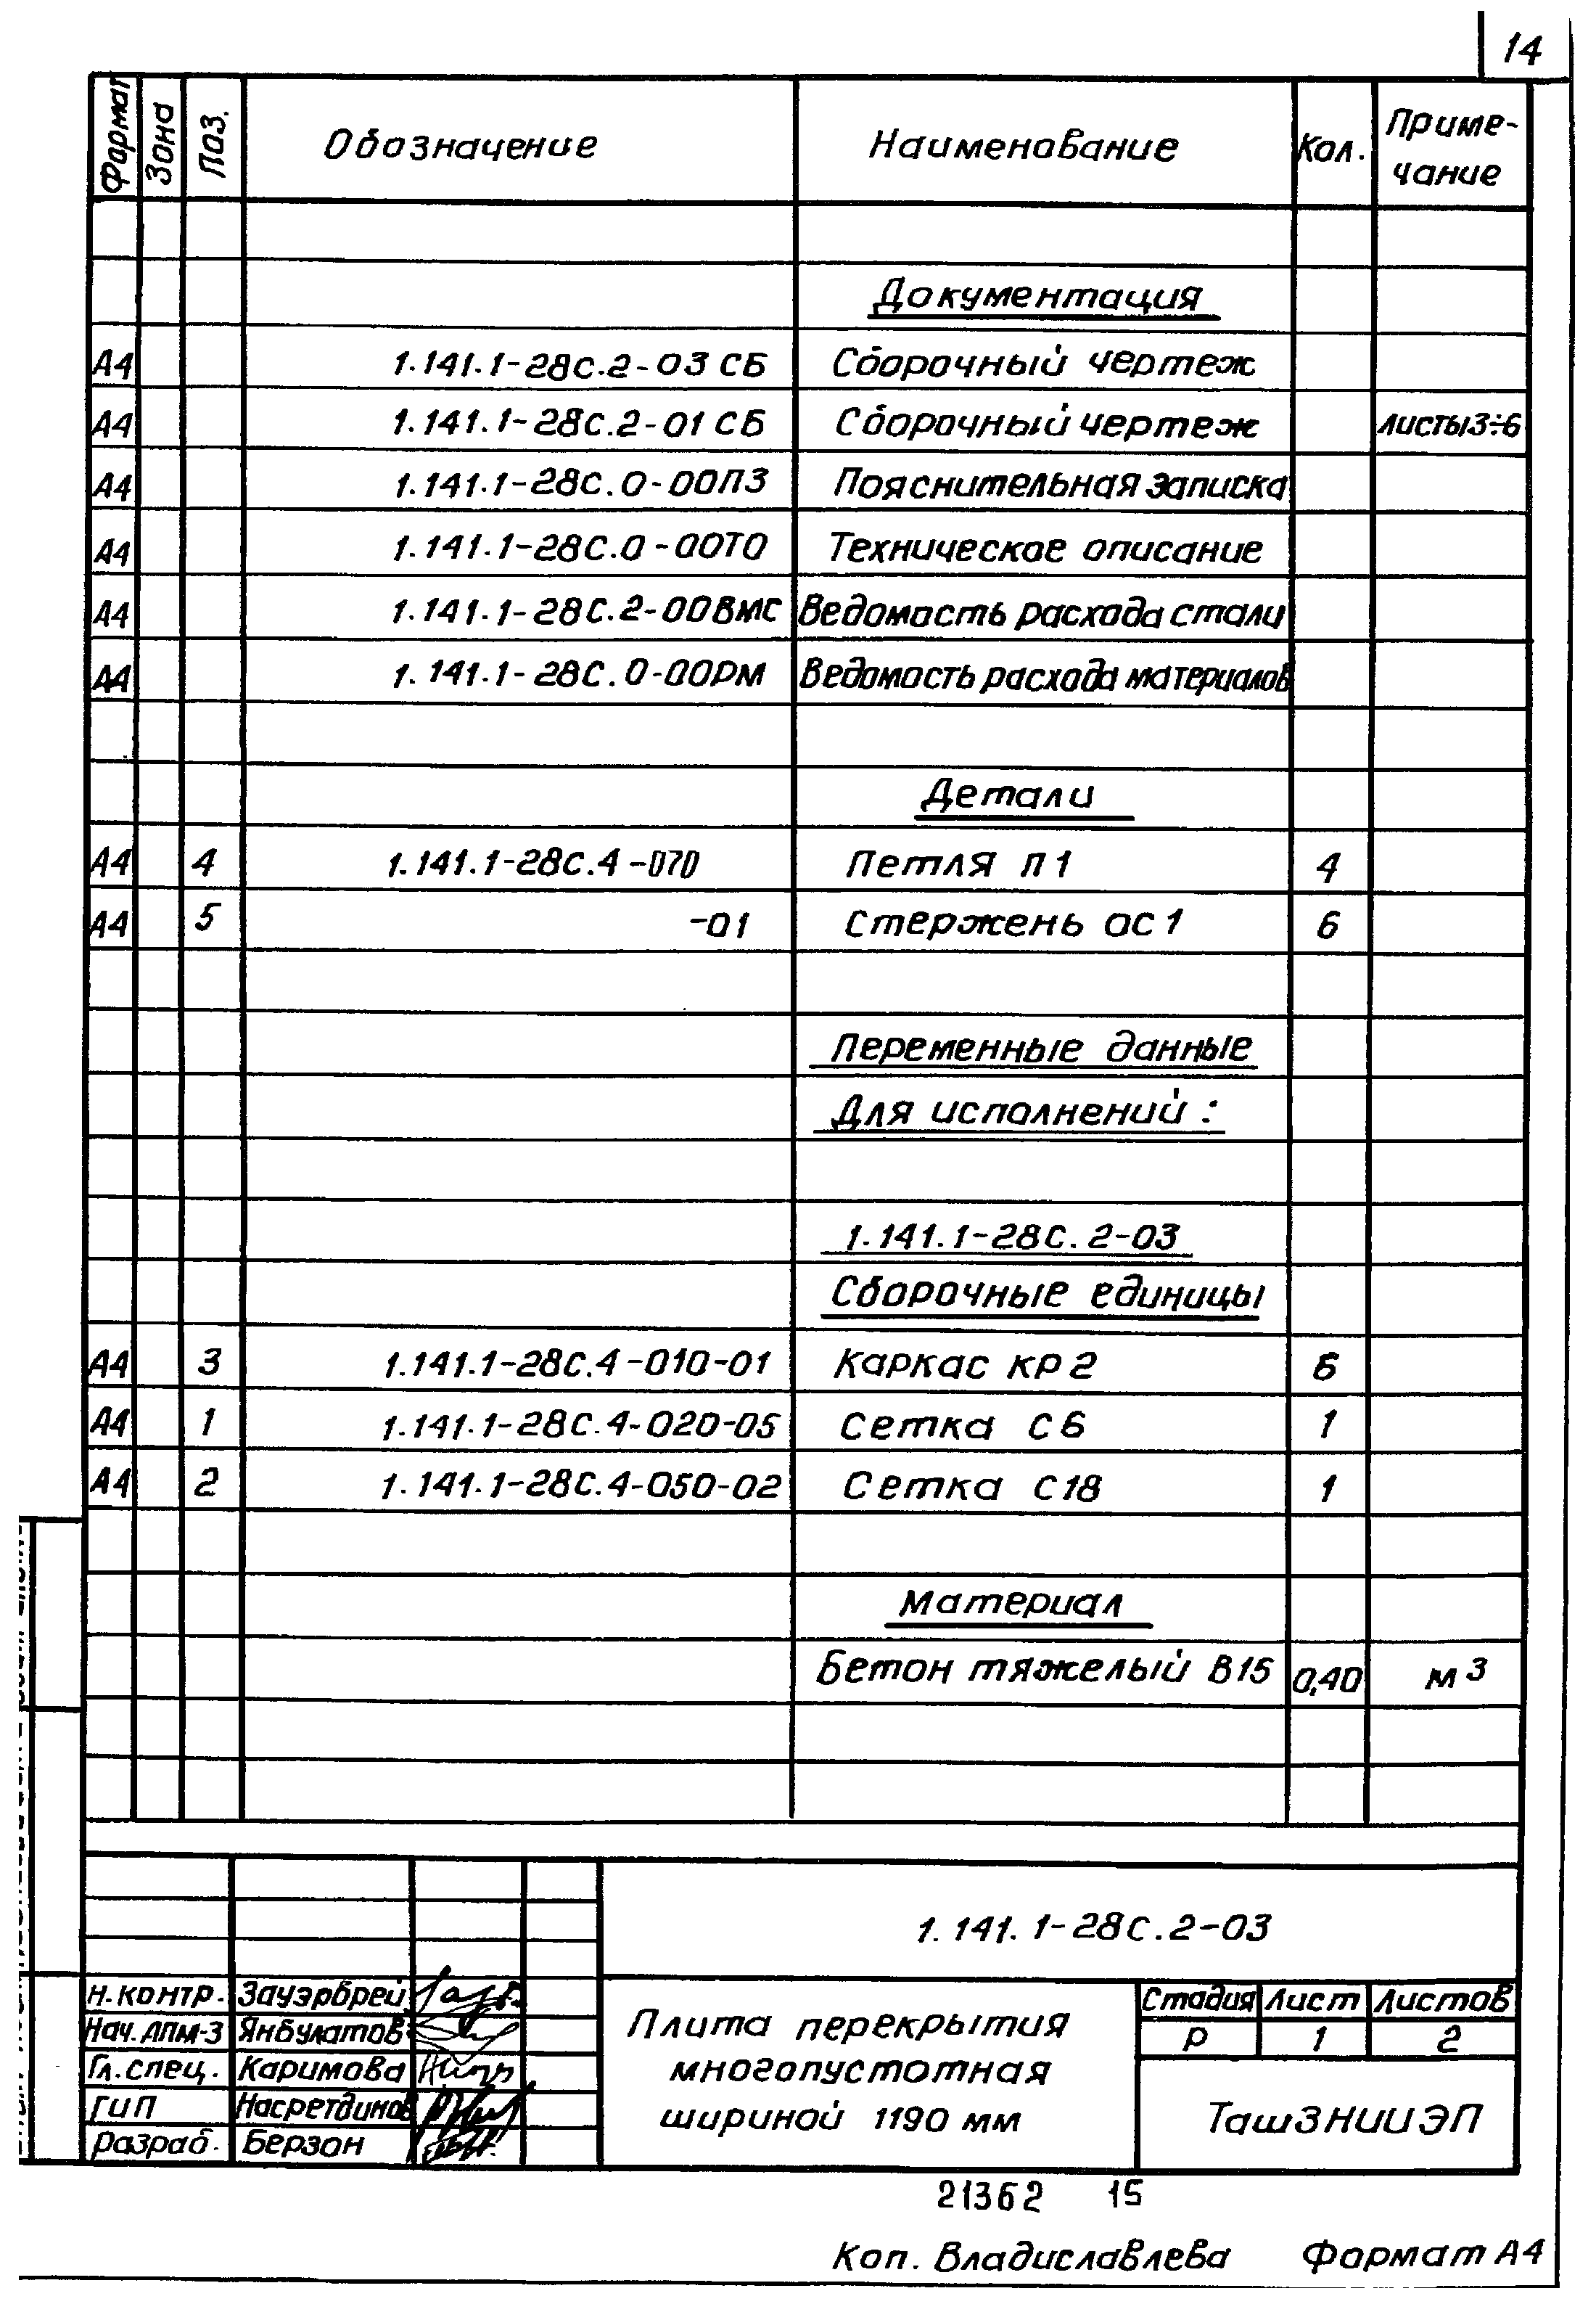 14
Формат Зона Поз. Обозначение Наименование Кол. Приме-
чание
Документация
А4 1.141.1-28С.2-03 СБ Сборочный чертеж
А4 1.141.1-28С.2-01 СБ Сборочный чертеж листы3÷6
А4 1.141.1-28С.0-00ПЗ Пояснительная записка
А4 1.141.1-28С.0-00ТО Техническое описание
А4 1.141.1-28С.2-00ВМС Ведомость расхода стали
А4 1.141.1-28С.0-00РМ Ведомость расхода материалов
Детали
А4 4 1.141.1-28С.4-070 Петля П1 4
А4 5 -01 Стержень ОС1 6
Переменные данные
Для исполнений:
1.141.1-28С.2-03
Сборочные единицы
А4 3 1.141.1-28С.4-010-01 Каркас КР2 6
А4 1 1.141.1-28С.4-020-05 Сетка С6 1
А4 2 1.141.1-28С.4-050-02 Сетка С18 1
Материал
Бетон тяжелый В15 0,40 м3
1.141.1-28С.2-03
Н.контр. Зауэрбрей
Нач.АПМ-3 Янбулатов
Гл.спец. Каримова
ГИП Насретдинов
Разраб. Берзон
Плита перекрытия
многопустотная
шириной 1190 мм
Стадия Лист Листов
Р 1 2
ТашЗНИИЭП
21362 15
Коп. Владиславлева Формат А4